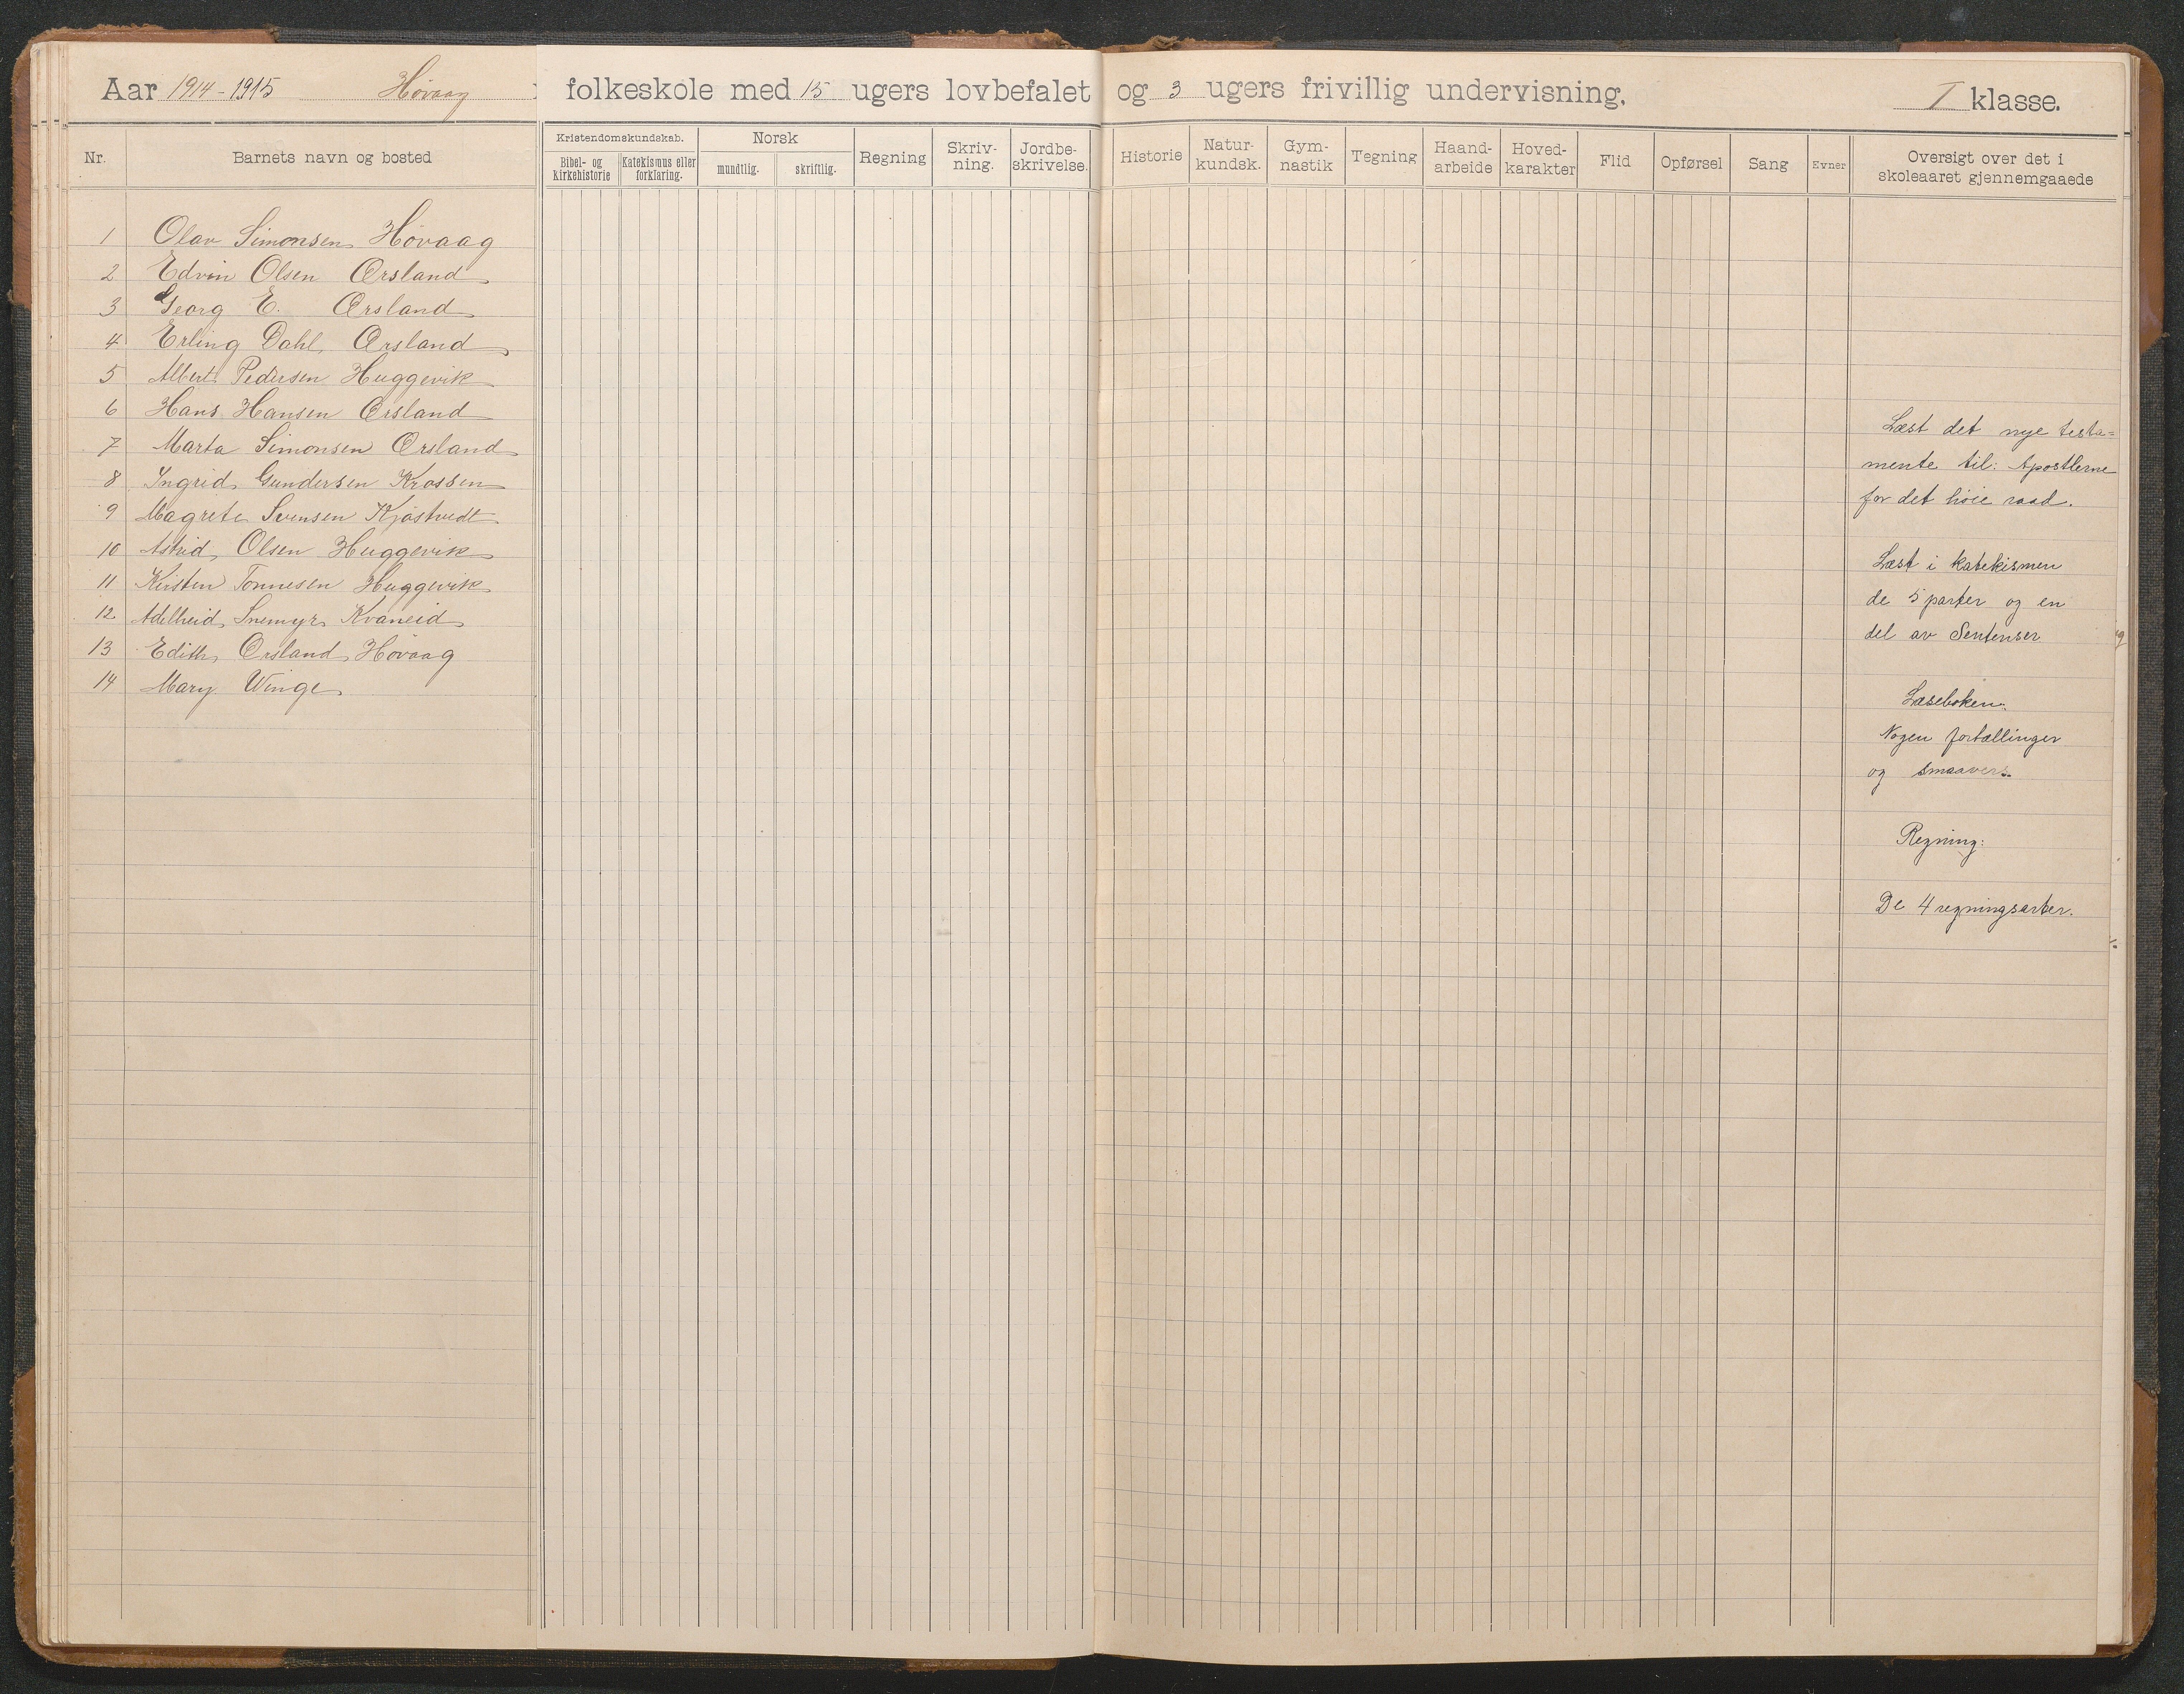 Aar 1914-1915 Høvaag folkeskole med 15 ugers lovbefalet og 3 ugers frivillig undervisning. I klasse.
Nr. Barnets navn og bosted
Kristendomskundskab. Norsk
Bibel- og kirkehistorie Katekismus eller forklaring. mundtlig. skriftlig. Regning Skriv-ning. Jordbe-skrivelse. Historie Natur-kundsk. Gym-nastik Tegning Haand-arbeide Hoved-karakter Flid Opførsel Sang Evner Oversigt over det i skoleaaret gjennemgaaede
1 Olav Simonsen Høvaag
2 Edvin Olsen Ørsland
3 Georg E. Ørsland
4 Erling Dahl Ørsland
5 Albert Pedersen Huggevik
6 Hans Hansen Ørsland
7 Marta Simonsen Ørsland
8 Ingrid Gundersen Krossen
9 Magrete Svensen Kjøstvedt
10 Astrid Olsen Huggevik
11 Kirsten Tønnesen Huggevik
12 Adelheid Snemyr Kvaneid
13 Edith Ørsland Høvaag
14 Mary Winge
Læst det nye testa=
mente til: Apostlerne
for det høie raad.
Læst i katekismen
de 5 parter og en
del av Sentenser
Læseboken:
Nogen fortællinger
og smaavers.
Regning:
De 4 regningsarter.